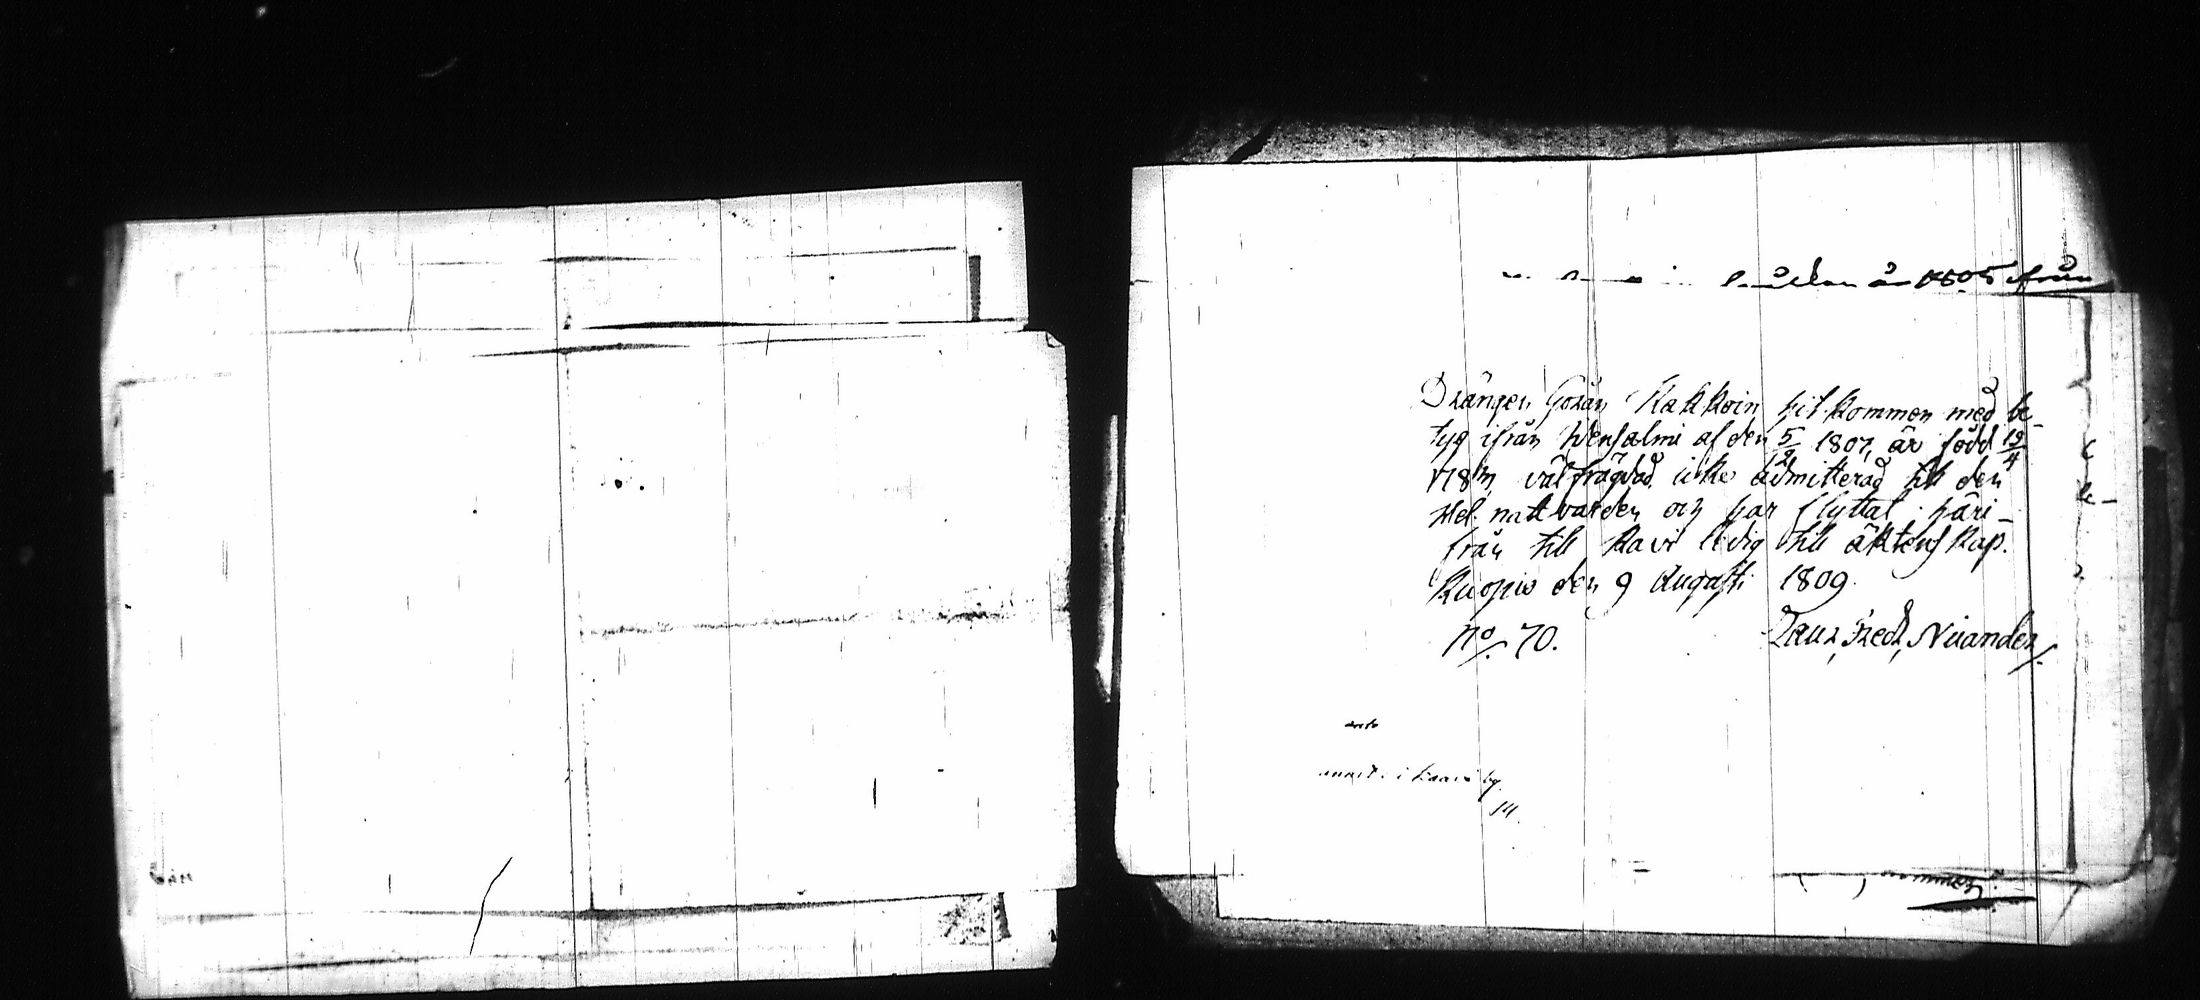 år 1805 ifrån
Drängen Göran Kakkoin hit kommen med be-
tyg ifrån Idensalmi af den 5/2 1807, är född 19/4
välfrägdad, icke admitterad till den
Hel. nattvarden och har flyttat häri-
från till Kavi ledig till äktenskap.
Kuopio den 9 Augusti 1809.
No/. 70. Laur, Fred, Niiander/.
i Kaavi by